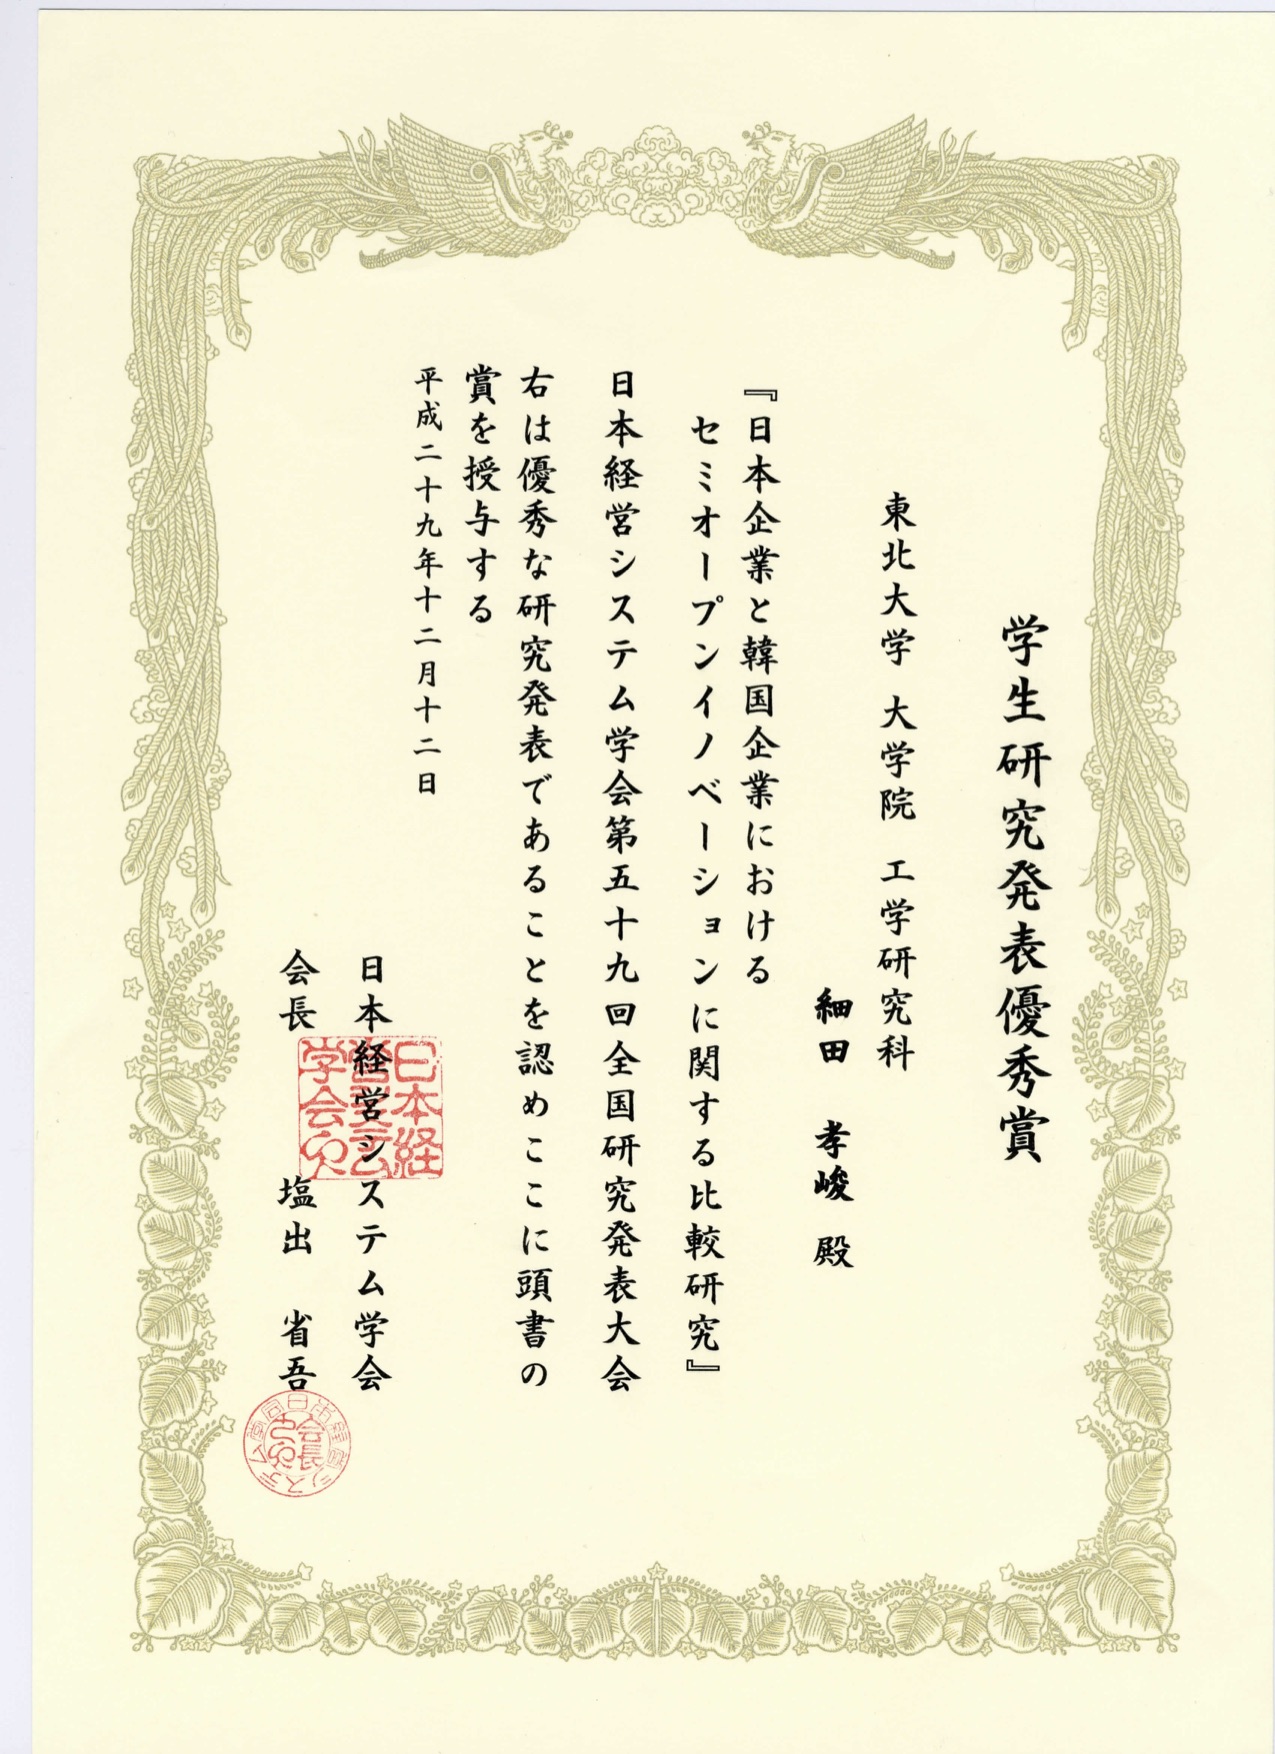 学生研究発表優秀賞
東北大学 大学院 工学研究科
細田 孝峻 殿
『日本企業と韓国企業における
セミオープンイノベーションに関する比較研究』
日本経営システム学会第五十九回全国研究発表大会
右は優秀な研究発表であることを認めここに頭書の
賞を授与する
平成二十九年十二月十二日
日本経営システム学会
会長 塩出 省吾